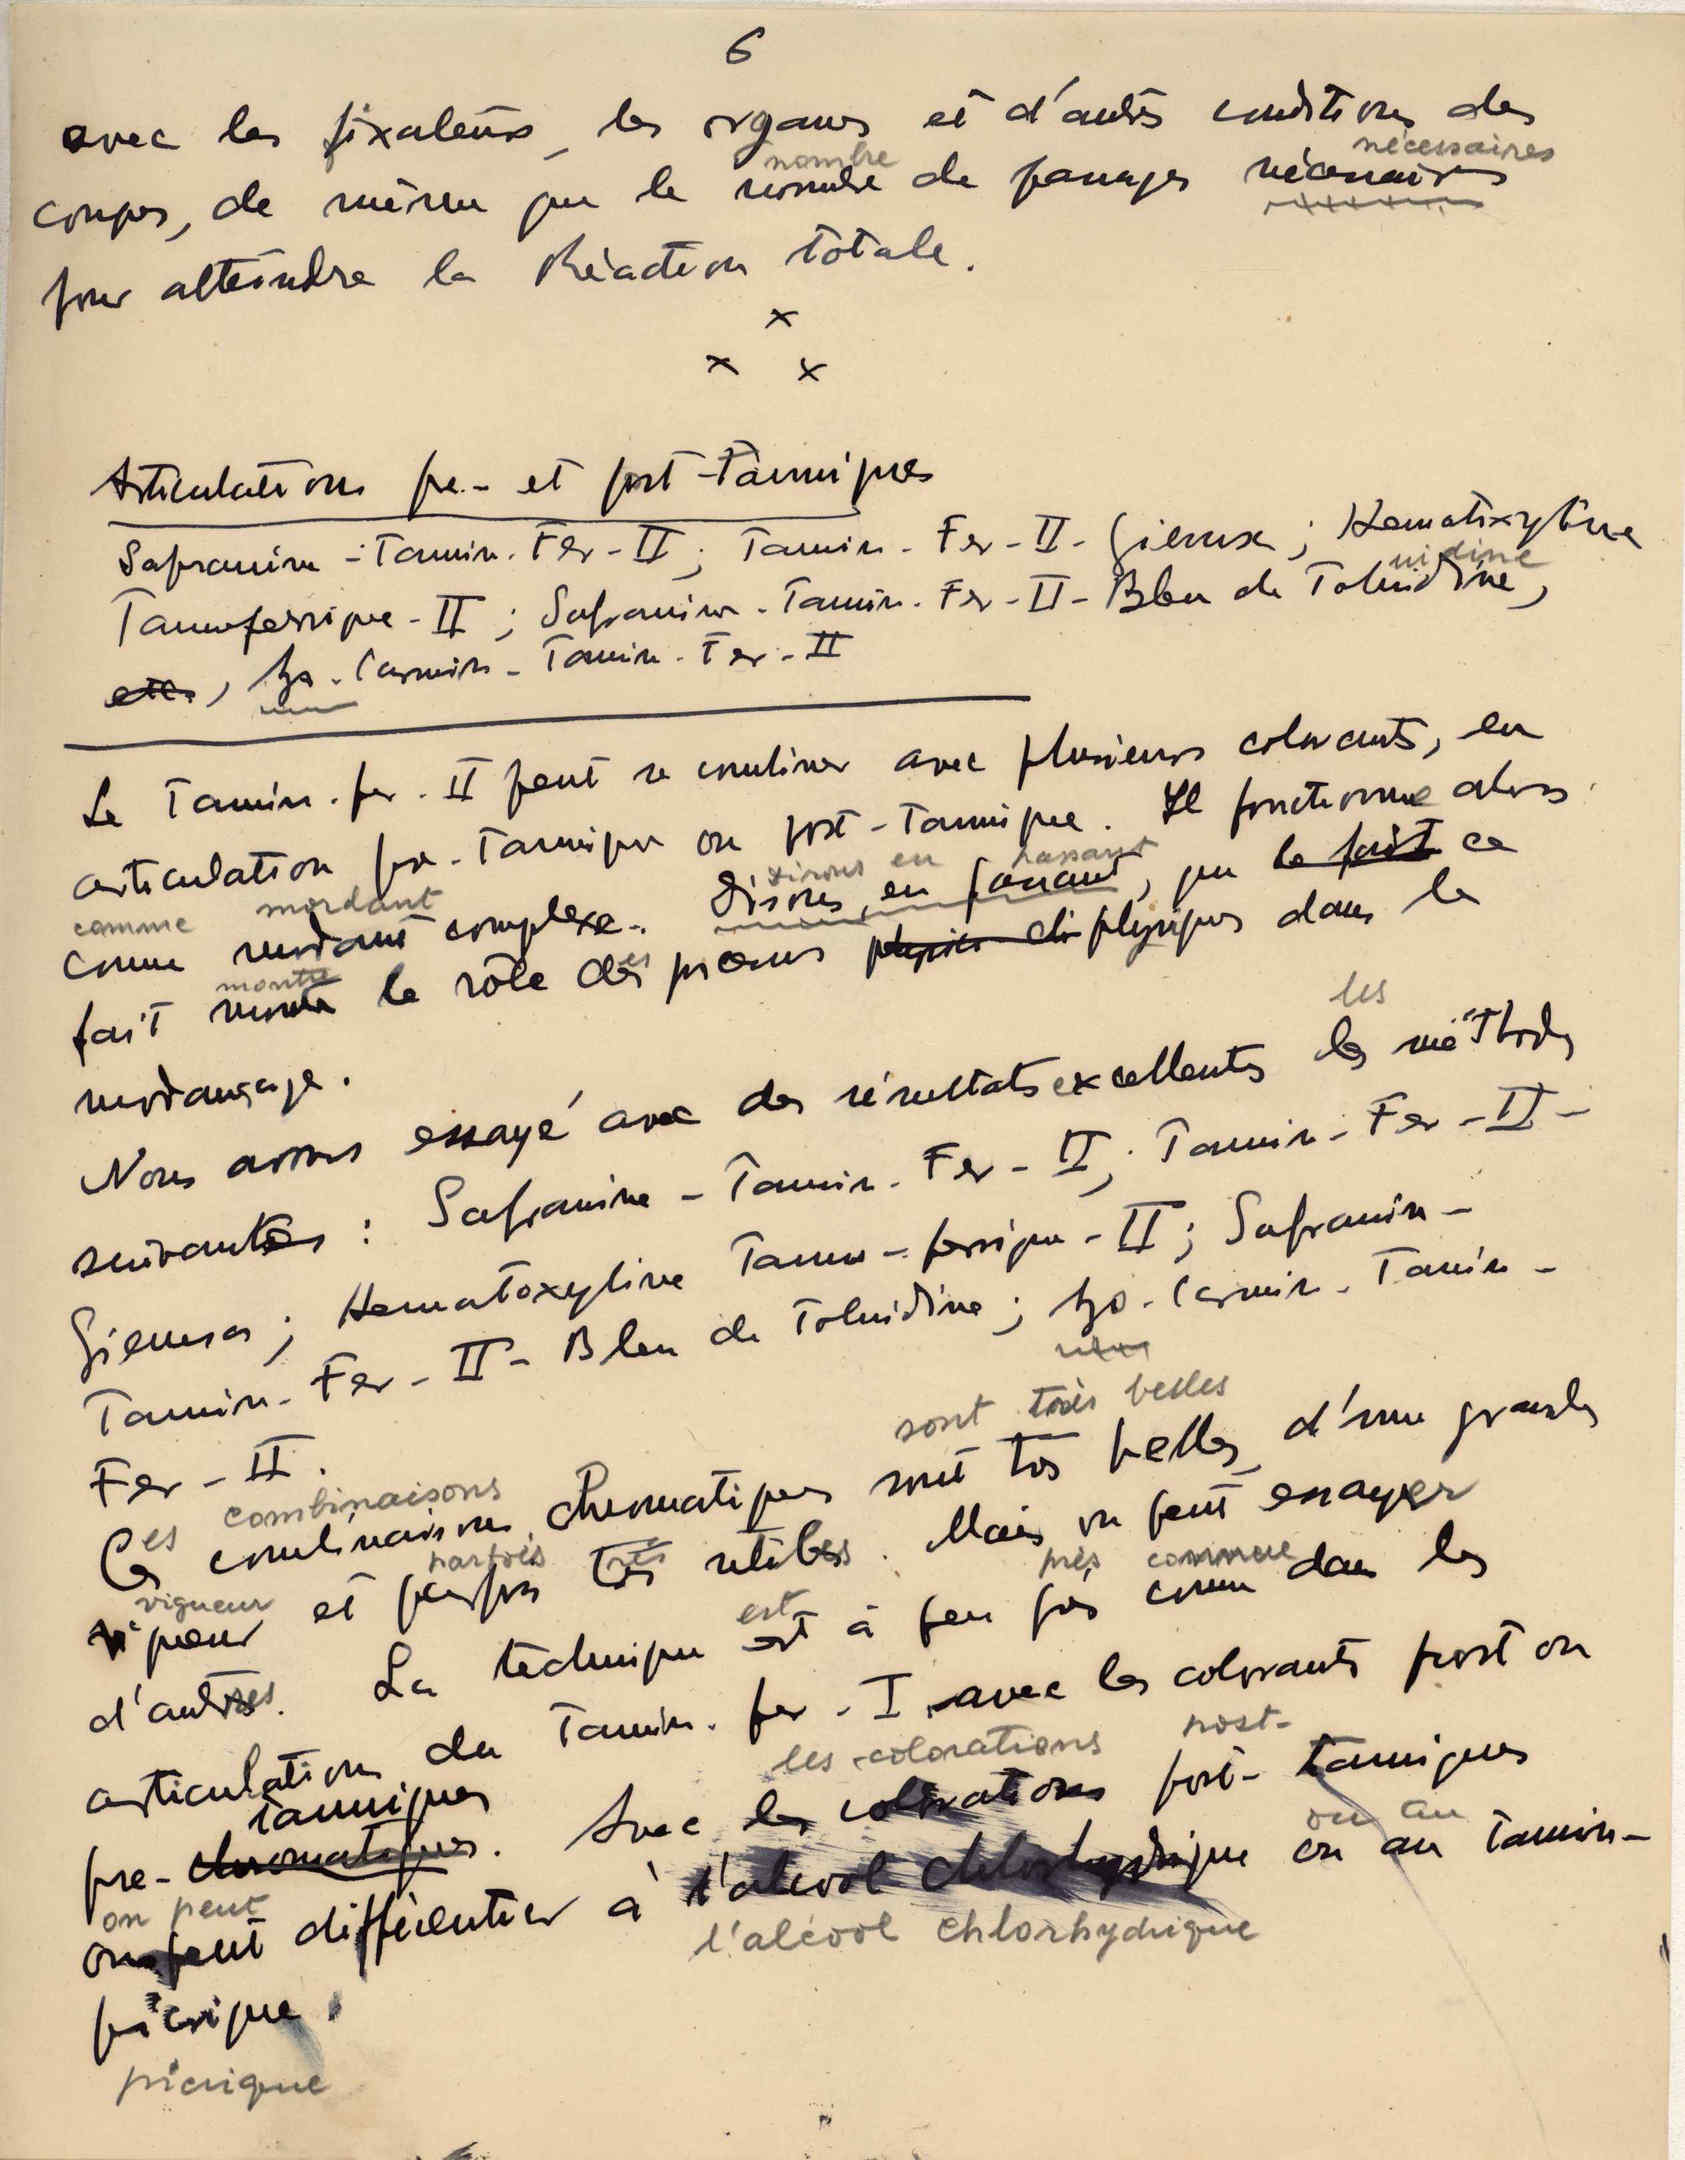 6
avec les fixateurs, les organes et d'autres conditions des
nombre nécessaires
coupes, de même que le nombre de passages nécessaires
pour atteindre la Réaction totale.
x
x x
Articulations pre- et post-Tanniques
Safranine-Tannin-Fer-II; Tannin-Fer-II-Giemsa; Hematoxyline
uidine
Tannoferrique-II; Safranine-Tannin-Fer-II-Bleu de Toluidine,
etc., Azo-Carmin-Tannin-Fer-II
Le Tannin-fer-II peut se combiner avec plusieurs colorants, en
articulation pre-Tannique ou post-Tannique. Il fonctionne alors
comme mordant disons en passant
comme mordant complexe. Disons, en passant, que le fait ce
montre es
fait montre le rôle des procesus physico-ch physiques dans le
mordançage.
les
Nous avons essayé avec des résultats excellents les méthodes
suivantes: Safranine-Tannin-Fer-II; Tannin-Fer-II-
Giemsa; Hematoxyline Tanno-ferrique-II; Safranin-
Tannin-Fer-II-Bleu de Toluidine; Azo-Carmin-Tanin-
Fer-II.
sont très belles
es combinaisons
Ces combinaisons chromatiques sont très belles, d'une grande
vigueur parfois
vigueur et parfois très utiles. Mais on peut essayer
est près comme
d'autres. La technique est à peu près comme dans les
articulations du Tannin-fer-I avec les colorants post ou
les colorations post-
tanniques
pre-chromatiques. Avec les colorations post-tanniques
on peut ou au
on peut différentier à l'alcool chlorhydrique ou au Tannin-
l'alcool chlorhydrique
picrique.
picrique